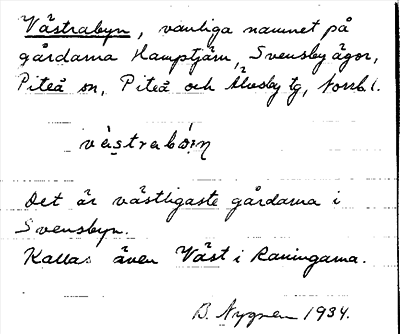 Västrabyn, vanliga namnet på
gårdarna Hamptjärn, Svensbyägor,
Piteå sn, Piteå och Älvsby tg, Norrb. l.
västrabýn
Det är västligaste gårdarna i
Svensbyn.
Kallas även Väst i Raningarna.
B. Nygren 1934.